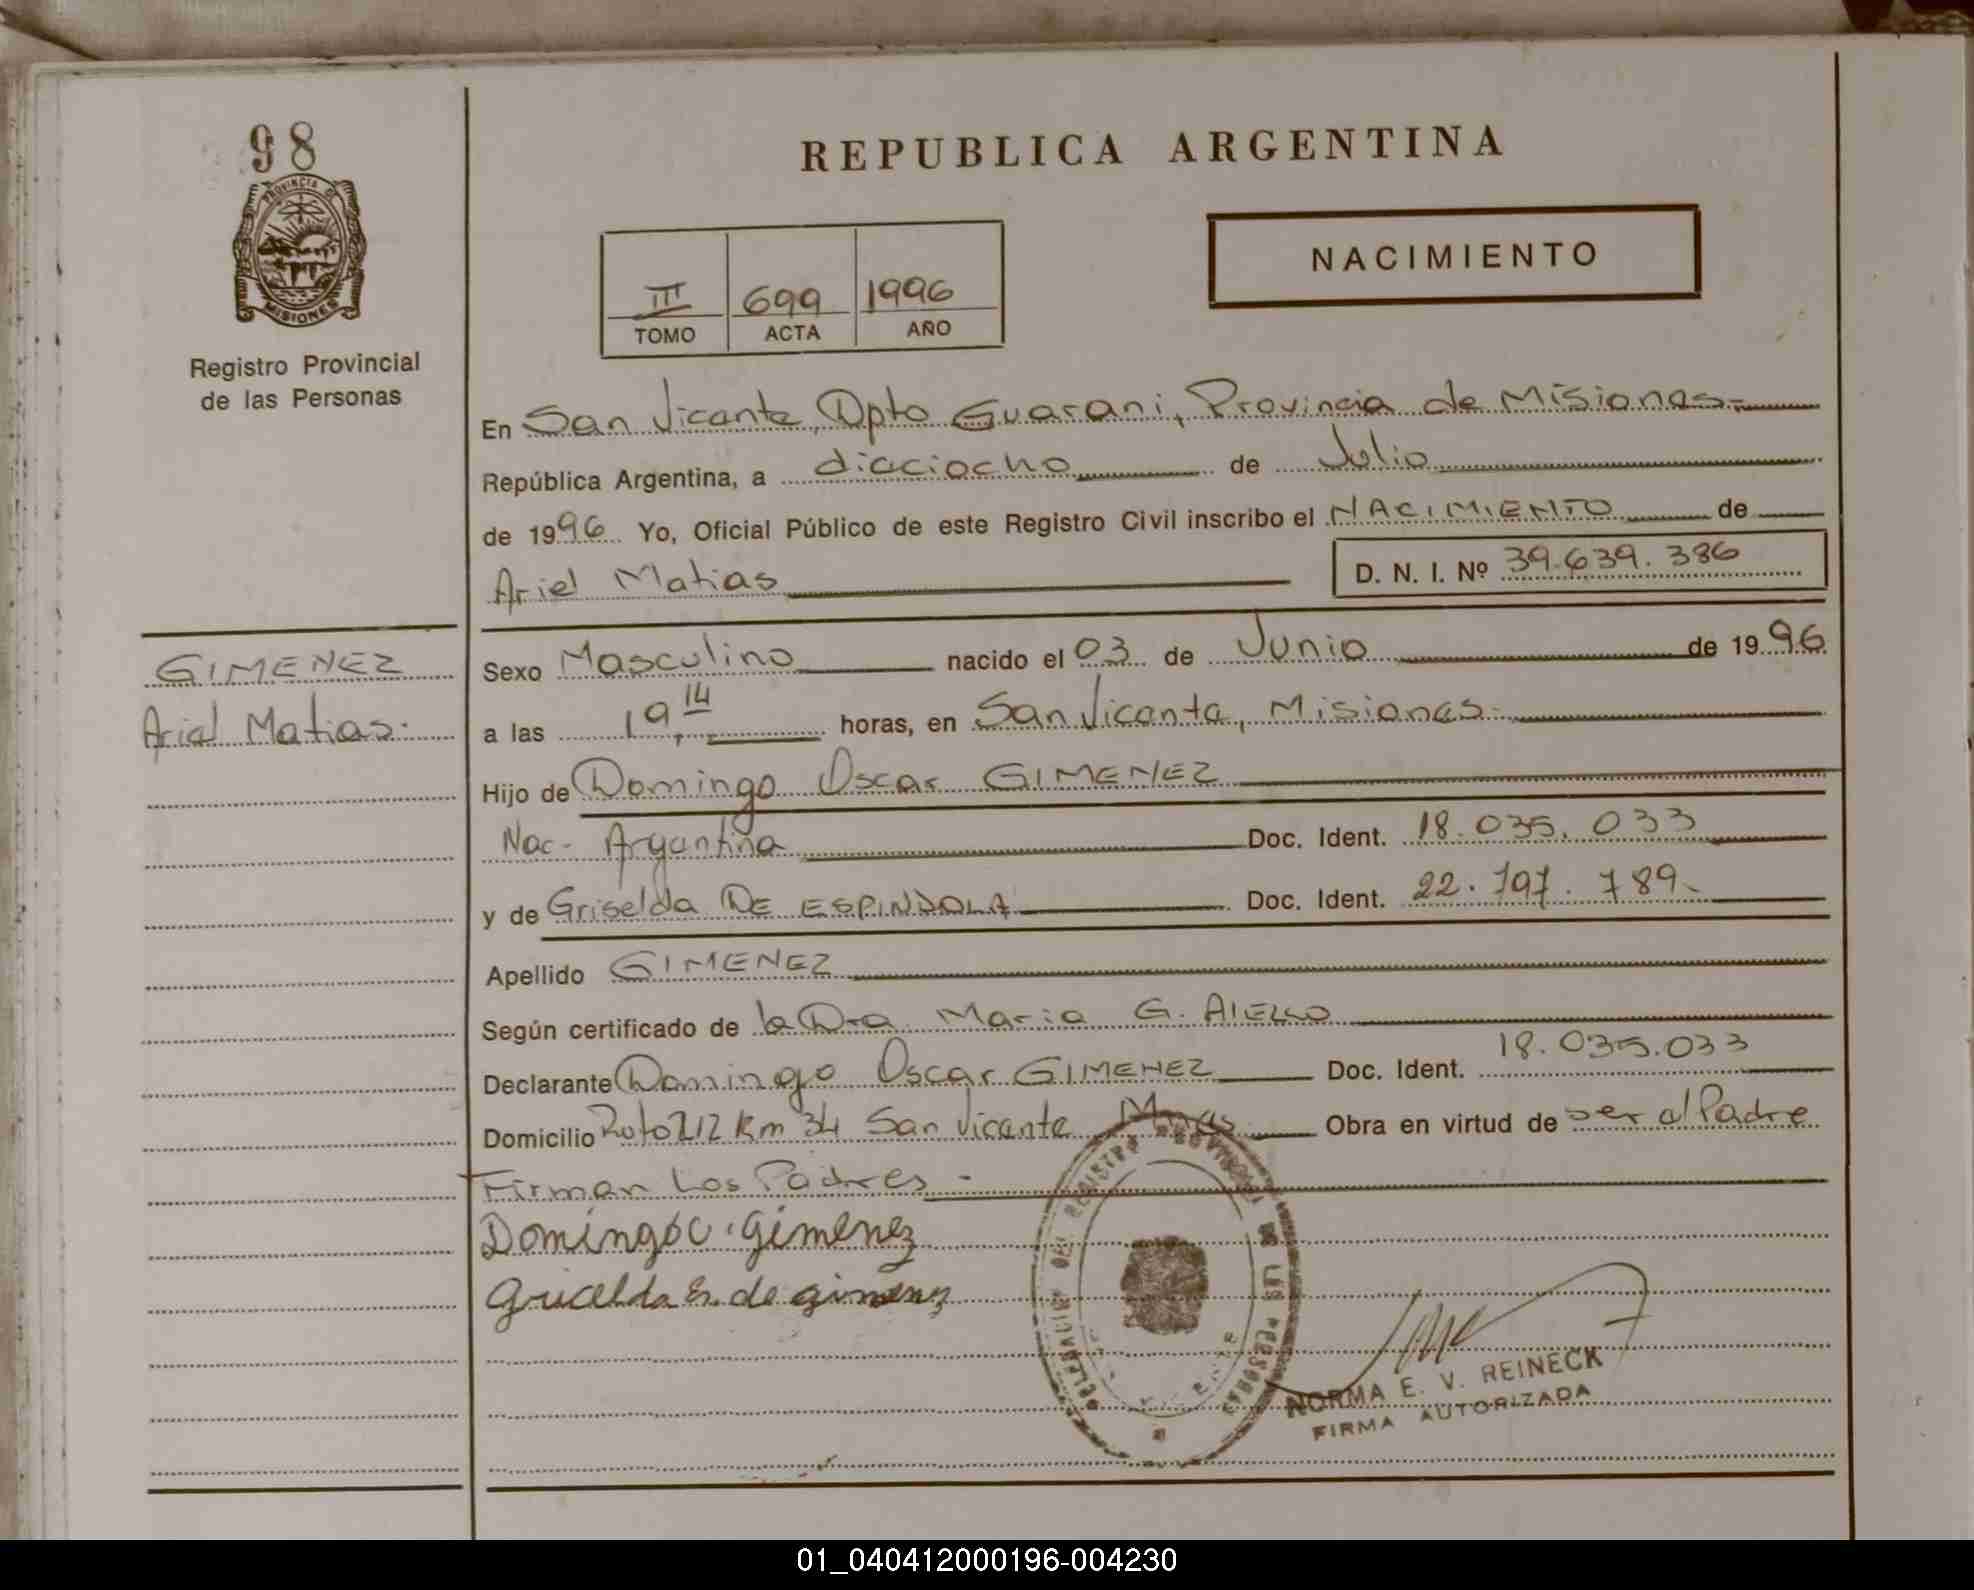 98
PROVINCIA DE
MISIONES
Registro Provincial
de las Personas
REPUBLICA ARGENTINA
NACIMIENTO
III 699 1996
TOMO ACTA AÑO
En San Vicente, Dpto Guarani, Provincia de Misiones.-
República Argentina, a dieciocho de Julio
de 1996 Yo, Oficial Público de este Registro Civil inscribo el NACIMIENTO de
Ariel Matias D. N. I. Nº 39.639.386
GIMENEZ
Ariel Matias.
Sexo Masculino nacido el 03 de Junio de 1996
a las 19,14 horas, en San Vicente, Misiones.-
Hijo de Domingo Oscar GIMENEZ
Nac. Argentina Doc. Ident. 18.035.033
y de Griselda DE ESPINDOLA Doc. Ident. 22.797.789.-
Apellido GIMENEZ
Según certificado de la Dra Maria G. AIELLO
Declarante Domingo Oscar GIMENEZ Doc. Ident. 18.035.033
Domicilio Ruta 212 Km 34 San Vicente Mnes Obra en virtud de ser el Padre
Firman Los Padres.-
Domingo O. Gimenez
Gricelda E. de gimenez
DELEGACION DEL REGISTRO PROVINCIAL DE LAS PERSONAS
NORMA E. V. REINECK
FIRMA AUTORIZADA
01_040412000196-004230